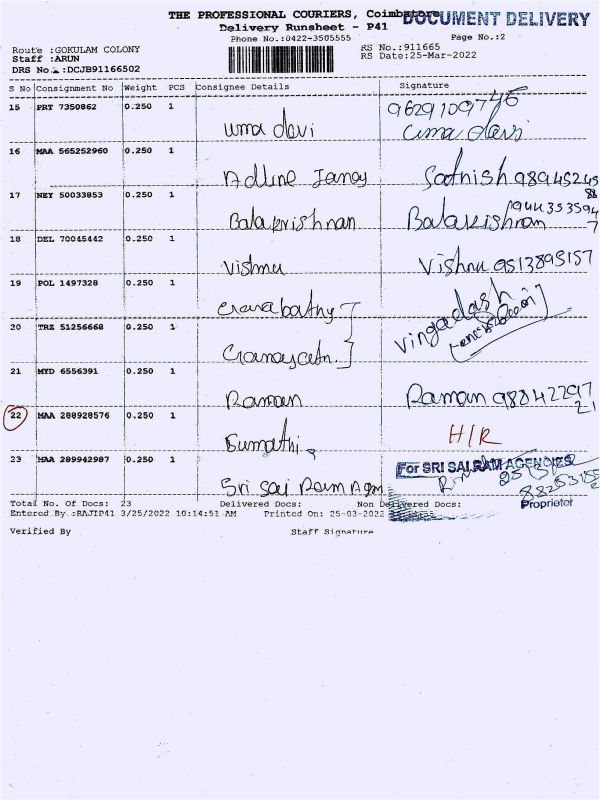 THE PROFESSIONAL COURIERS, Coimbatore
DOCUMENT DELIVERY
Delivery Runsheet - P41
Phone No.:0422-3505555
Page No.:2
Route :GOKULAM COLONY
RS No.:911665
Staff :ARUN
RS Date:25-Mar-2022
DRS No.:DCJB91166502
S No Consignment No Weight PCS Consignee Details Signature
15 PRT 7350862 0.250 1 uma devi 9629109746 uma devi
16 MAA 565252960 0.250 1 Adline Sathish
17 NEY 50033853 0.250 1 Balakrishnan Balakrishnan
18 DEL 70045442 0.250 1 Vishnu Vishnu 9513895157
19 POL 1497328 0.250 1
20 TRZ 51256668 0.250 1
21 MYD 6556391 0.250 1 Raman Raman 9884229721
22 MAA 288928576 0.250 1 Sumathi H/R
23 MAA 289942987 0.250 1 Sri Sai Ram Agn For SRI SAI RAM AGENCIES
Proprietor
Total No. Of Docs: 23 Delivered Docs: Non Delivered Docs:
Entered By :RAJIP41 3/25/2022 10:14:51 AM Printed On: 25-03-2022
Verified By Staff Signature